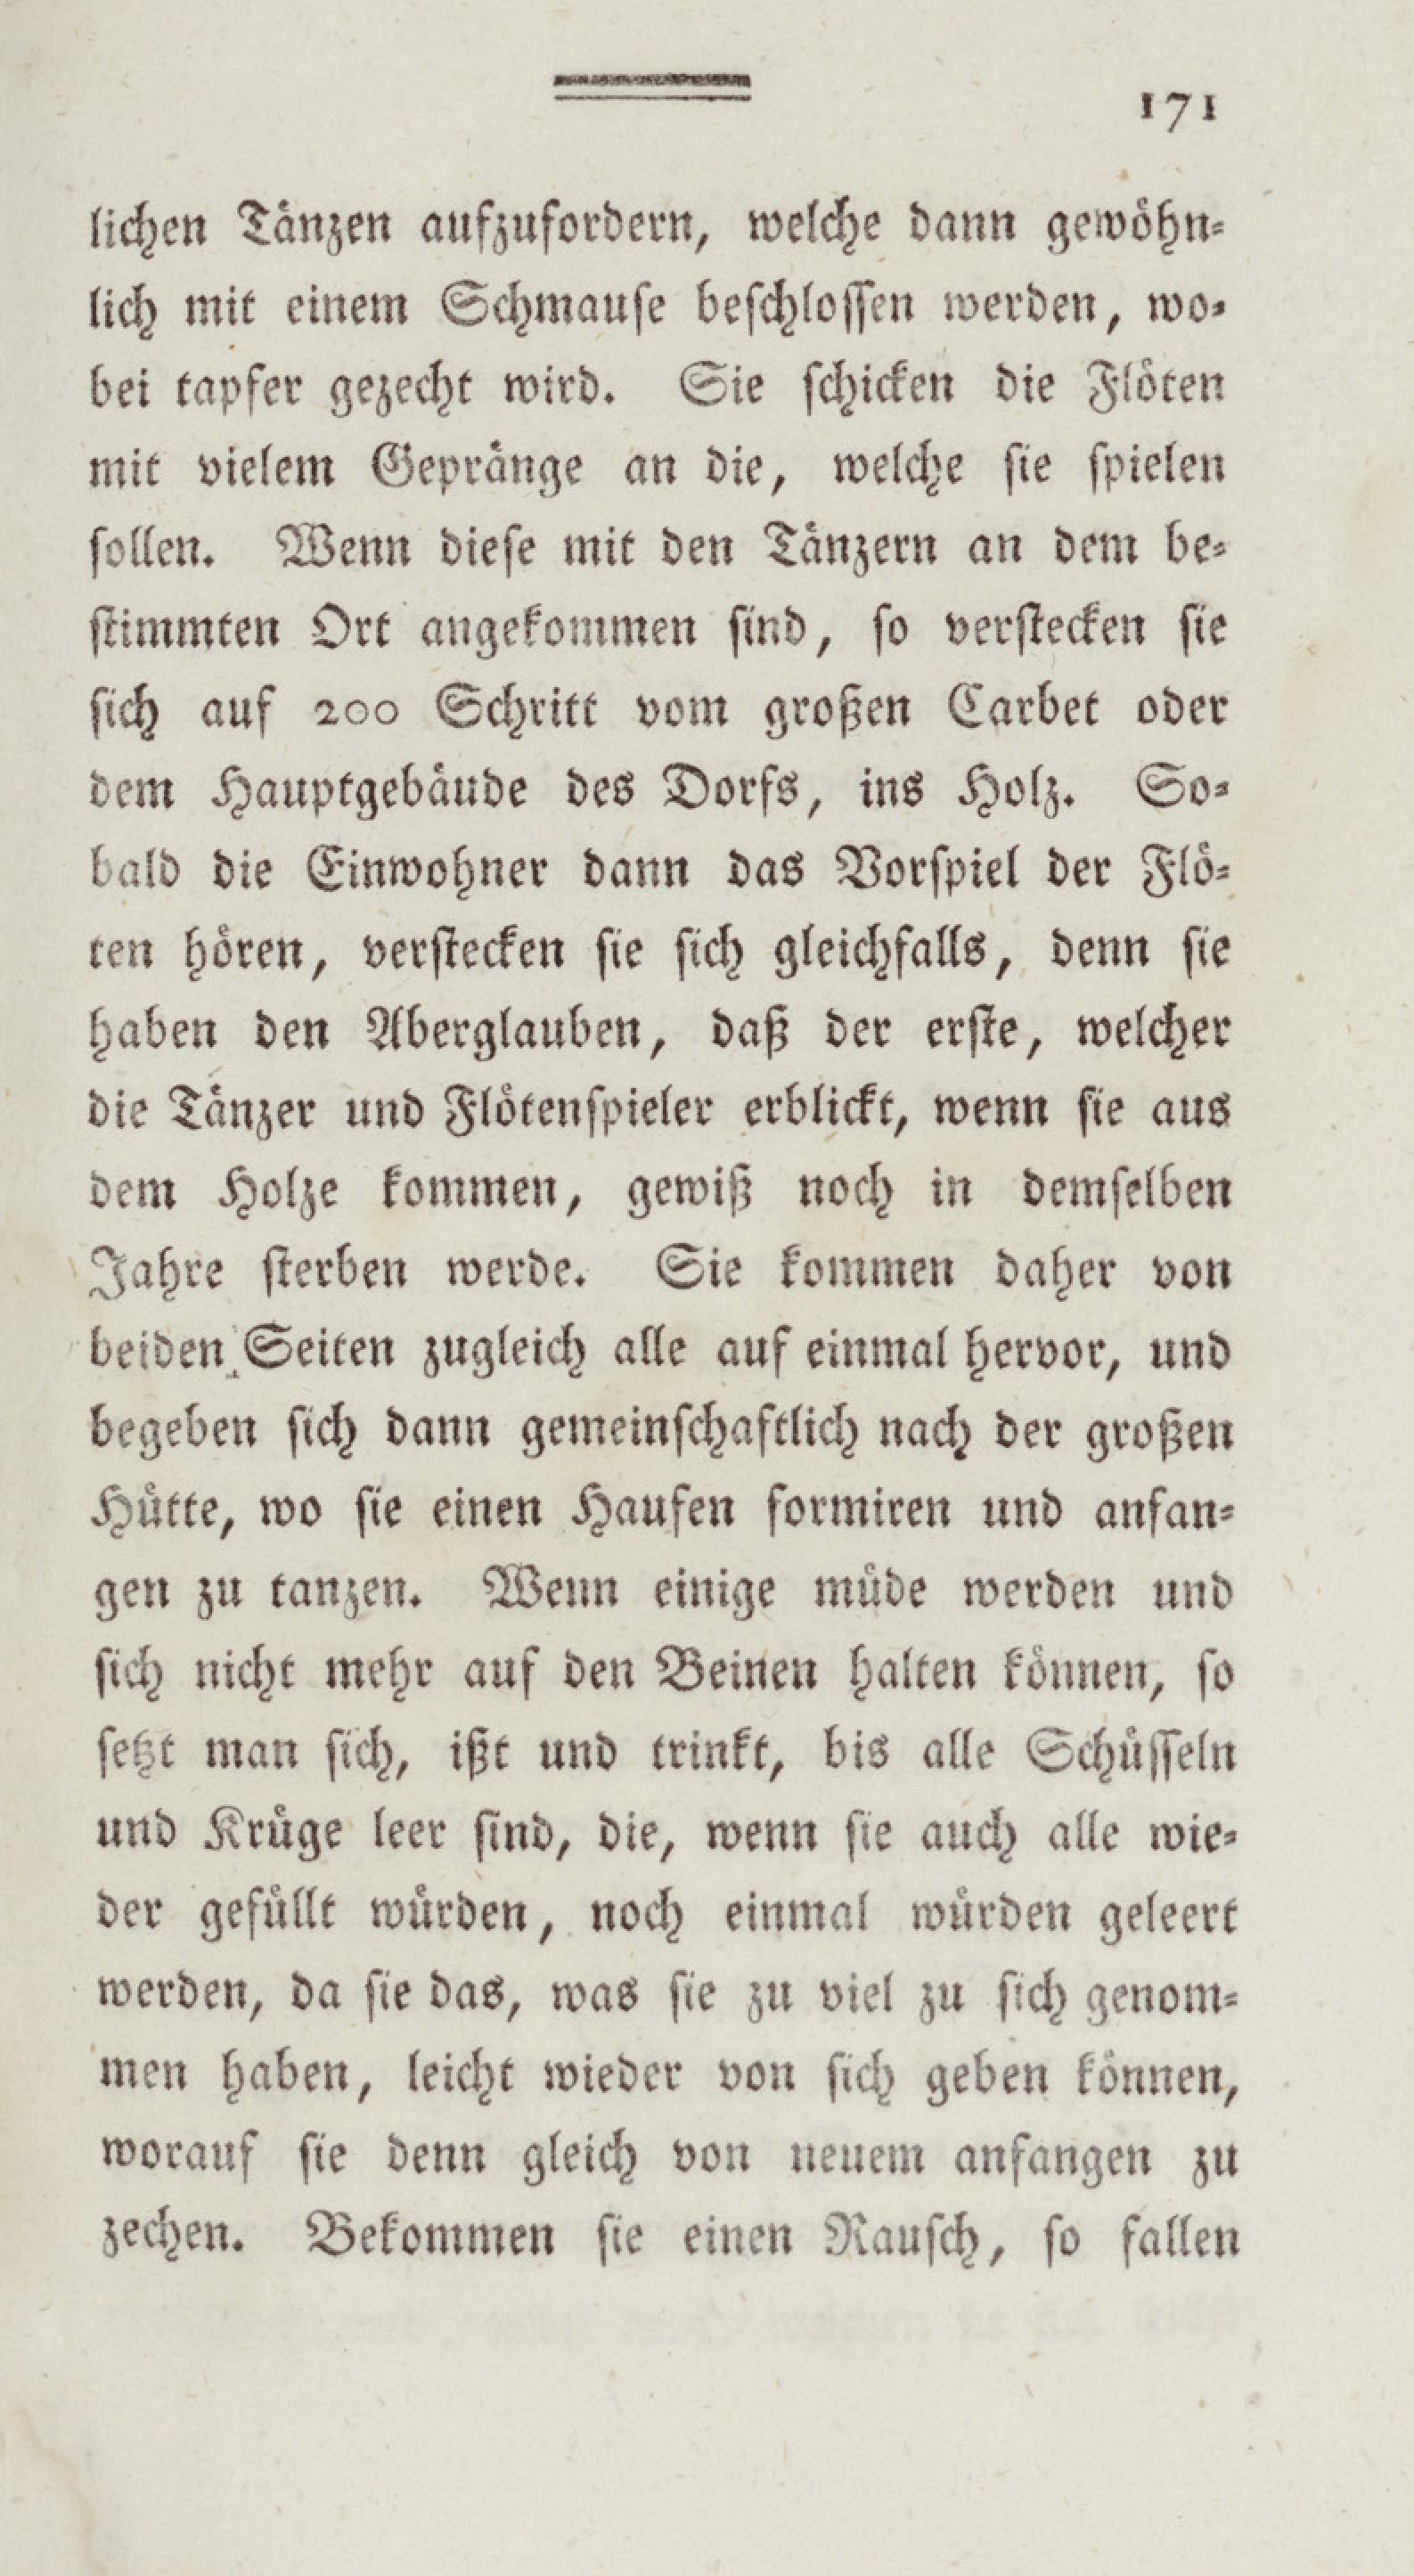 171
lichen Tänzen aufzufordern, welche dann gewöhn-
lich mit einem Schmause beschlossen werden, wo-
bei tapfer gezecht wird. Sie schicken die Flöten
mit vielem Gepränge an die, welche sie spielen
sollen. Wenn diese mit den Tänzern an dem be-
stimmten Ort angekommen sind, so verstecken sie
sich auf 200 Schritt vom großen Carbet oder
dem Hauptgebäude des Dorfs, ins Holz. So-
bald die Einwohner dann das Vorspiel der Flö-
ten hören, verstecken sie sich gleichfalls, denn sie
haben den Aberglauben, daß der erste, welcher
die Tänzer und Flötenspieler erblickt, wenn sie aus
dem Holze kommen, gewiß noch in demselben
Jahre sterben werde. Sie kommen daher von
beiden Seiten zugleich alle auf einmal hervor, und
begeben sich dann gemeinschaftlich nach der großen
Hütte, wo sie einen Haufen formiren und anfan-
gen zu tanzen. Wenn einige müde werden und
sich nicht mehr auf den Beinen halten können, so
setzt man sich, ißt und trinkt, bis alle Schüsseln
und Krüge leer sind, die, wenn sie auch alle wie-
der gefüllt würden, noch einmal würden geleert
werden, da sie das, was sie zu viel zu sich genom-
men haben, leicht wieder von sich geben können,
worauf sie denn gleich von neuem anfangen zu
zechen. Bekommen sie einen Rausch, so fallen